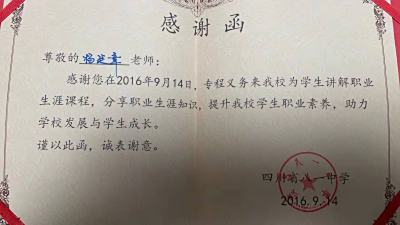 感谢函
尊敬的杨延章老师：
感谢您在2016年9月14日，专程义务来我校为学生讲解职业
生涯课程，分享职业生涯知识，提升我校学生职业素养，助力
学校发展与学生成长。
谨以此函，诚表谢意。
四川省八一中学
2016.9.14